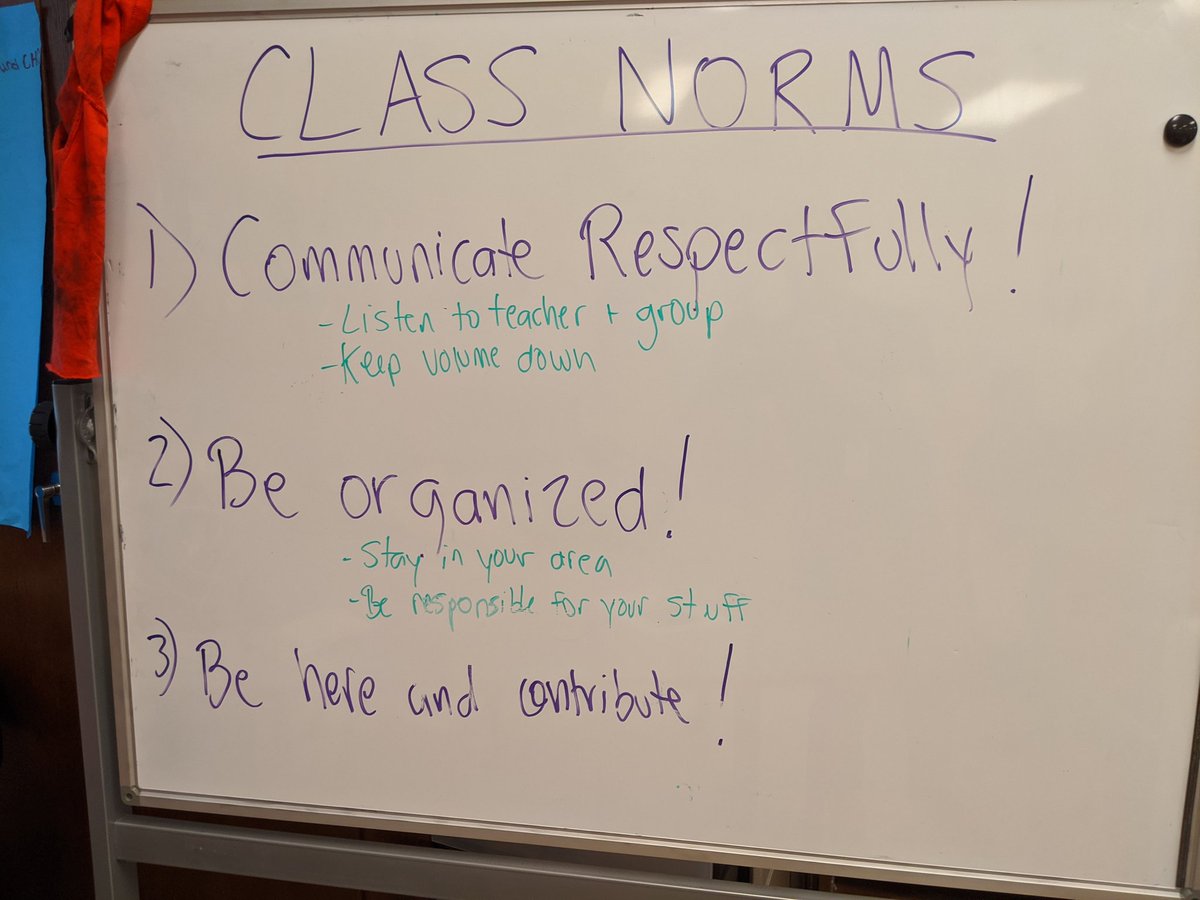 CLASS NORMS
1) Communicate Respectfully!
- Listen to teacher + group
- Keep volume down
2) Be organized!
- Stay in your area
- Be responsible for your stuff
3) Be here and contribute!